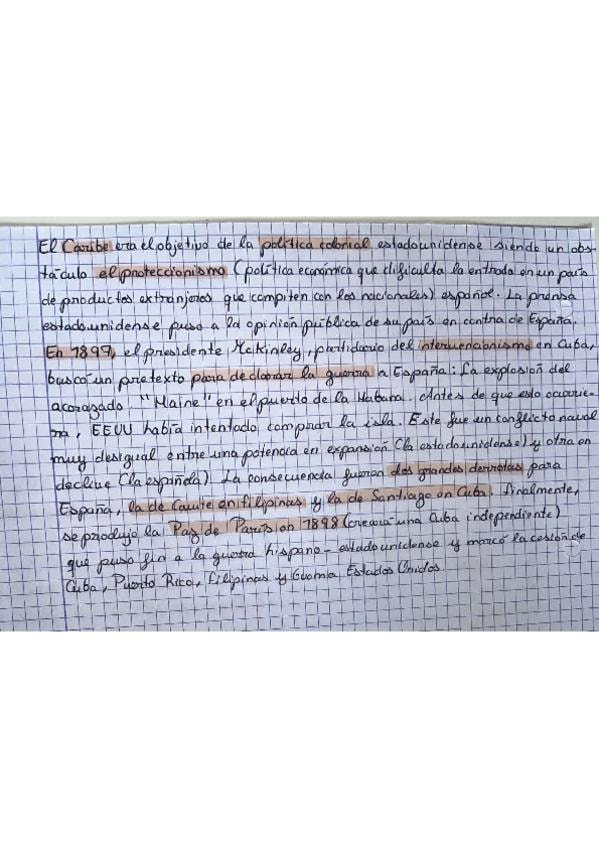 El Caribe era el objetivo de la política colonial estadounidense siendo un obs-
táculo el proteccionismo (política económica que dificulta la entrada en un país
de productos extranjeros que compiten con los nacionales) español. La prensa
estadounidense puso a la opinión pública de su país en contra de España.
En 1897, el presidente McKinley, partidario del intervencionismo en Cuba,
buscó un pretexto para declarar la guerra a España: La explosión del
acorazado "Maine" en el puerto de la Habana. Antes de que esto ocurrie-
ra, EEUU había intentado comprar la isla. Este fue un conflicto naval
muy desigual entre una potencia en expansión (la estadounidense) y otra en
declive (la española). La consecuencia fueron dos grandes derrotas para
España, la de Cavite en filipinas y la de Santiago en Cuba. Finalmente,
se produjo la Paz de París en 1898 (crearía una Cuba independiente)
que puso fin a la guerra hispano-estadounidense y marcó la cesión de
Cuba, Puerto Rico, Filipinas y Guam a Estados Unidos.